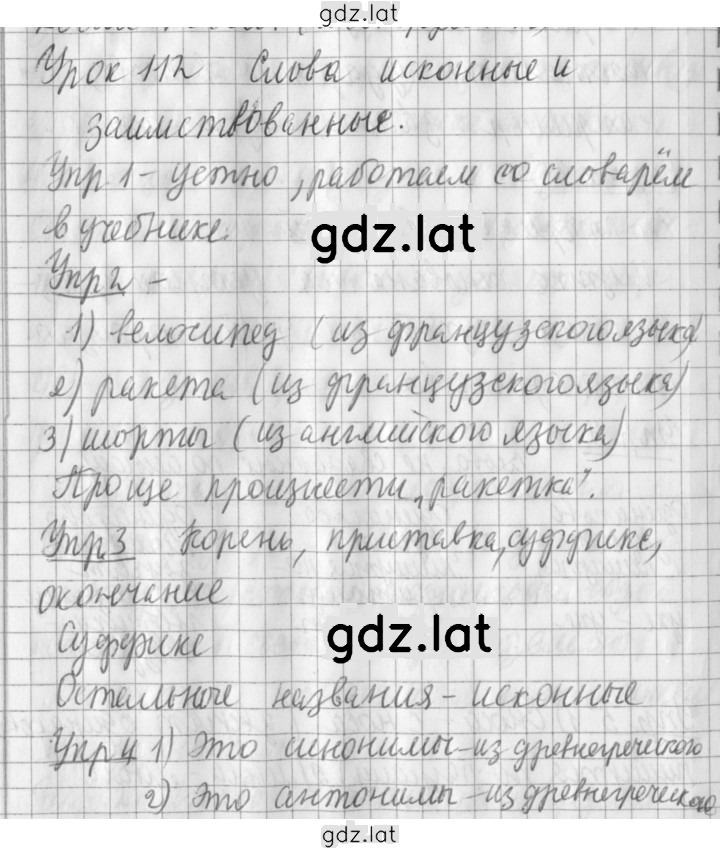 gdz.lat
Урок 112 Слова исконные и
заимствованные.
Упр 1 - устно, работаем со словарём
в учебнике.
gdz.lat
Упр 2 -
1) велосипед (из французского языка)
2) ракета (из французского языка)
3) шорты (из английского языка)
Проще произнести „ракетка".
Упр. 3 Корень, приставка, суффикс,
окончание
Суффикс
gdz.lat
Остальные названия - исконные
Упр 4 1) Это синонимы - из древнегреческого
2) Это антонимы - из древнегреческого
gdz.lat